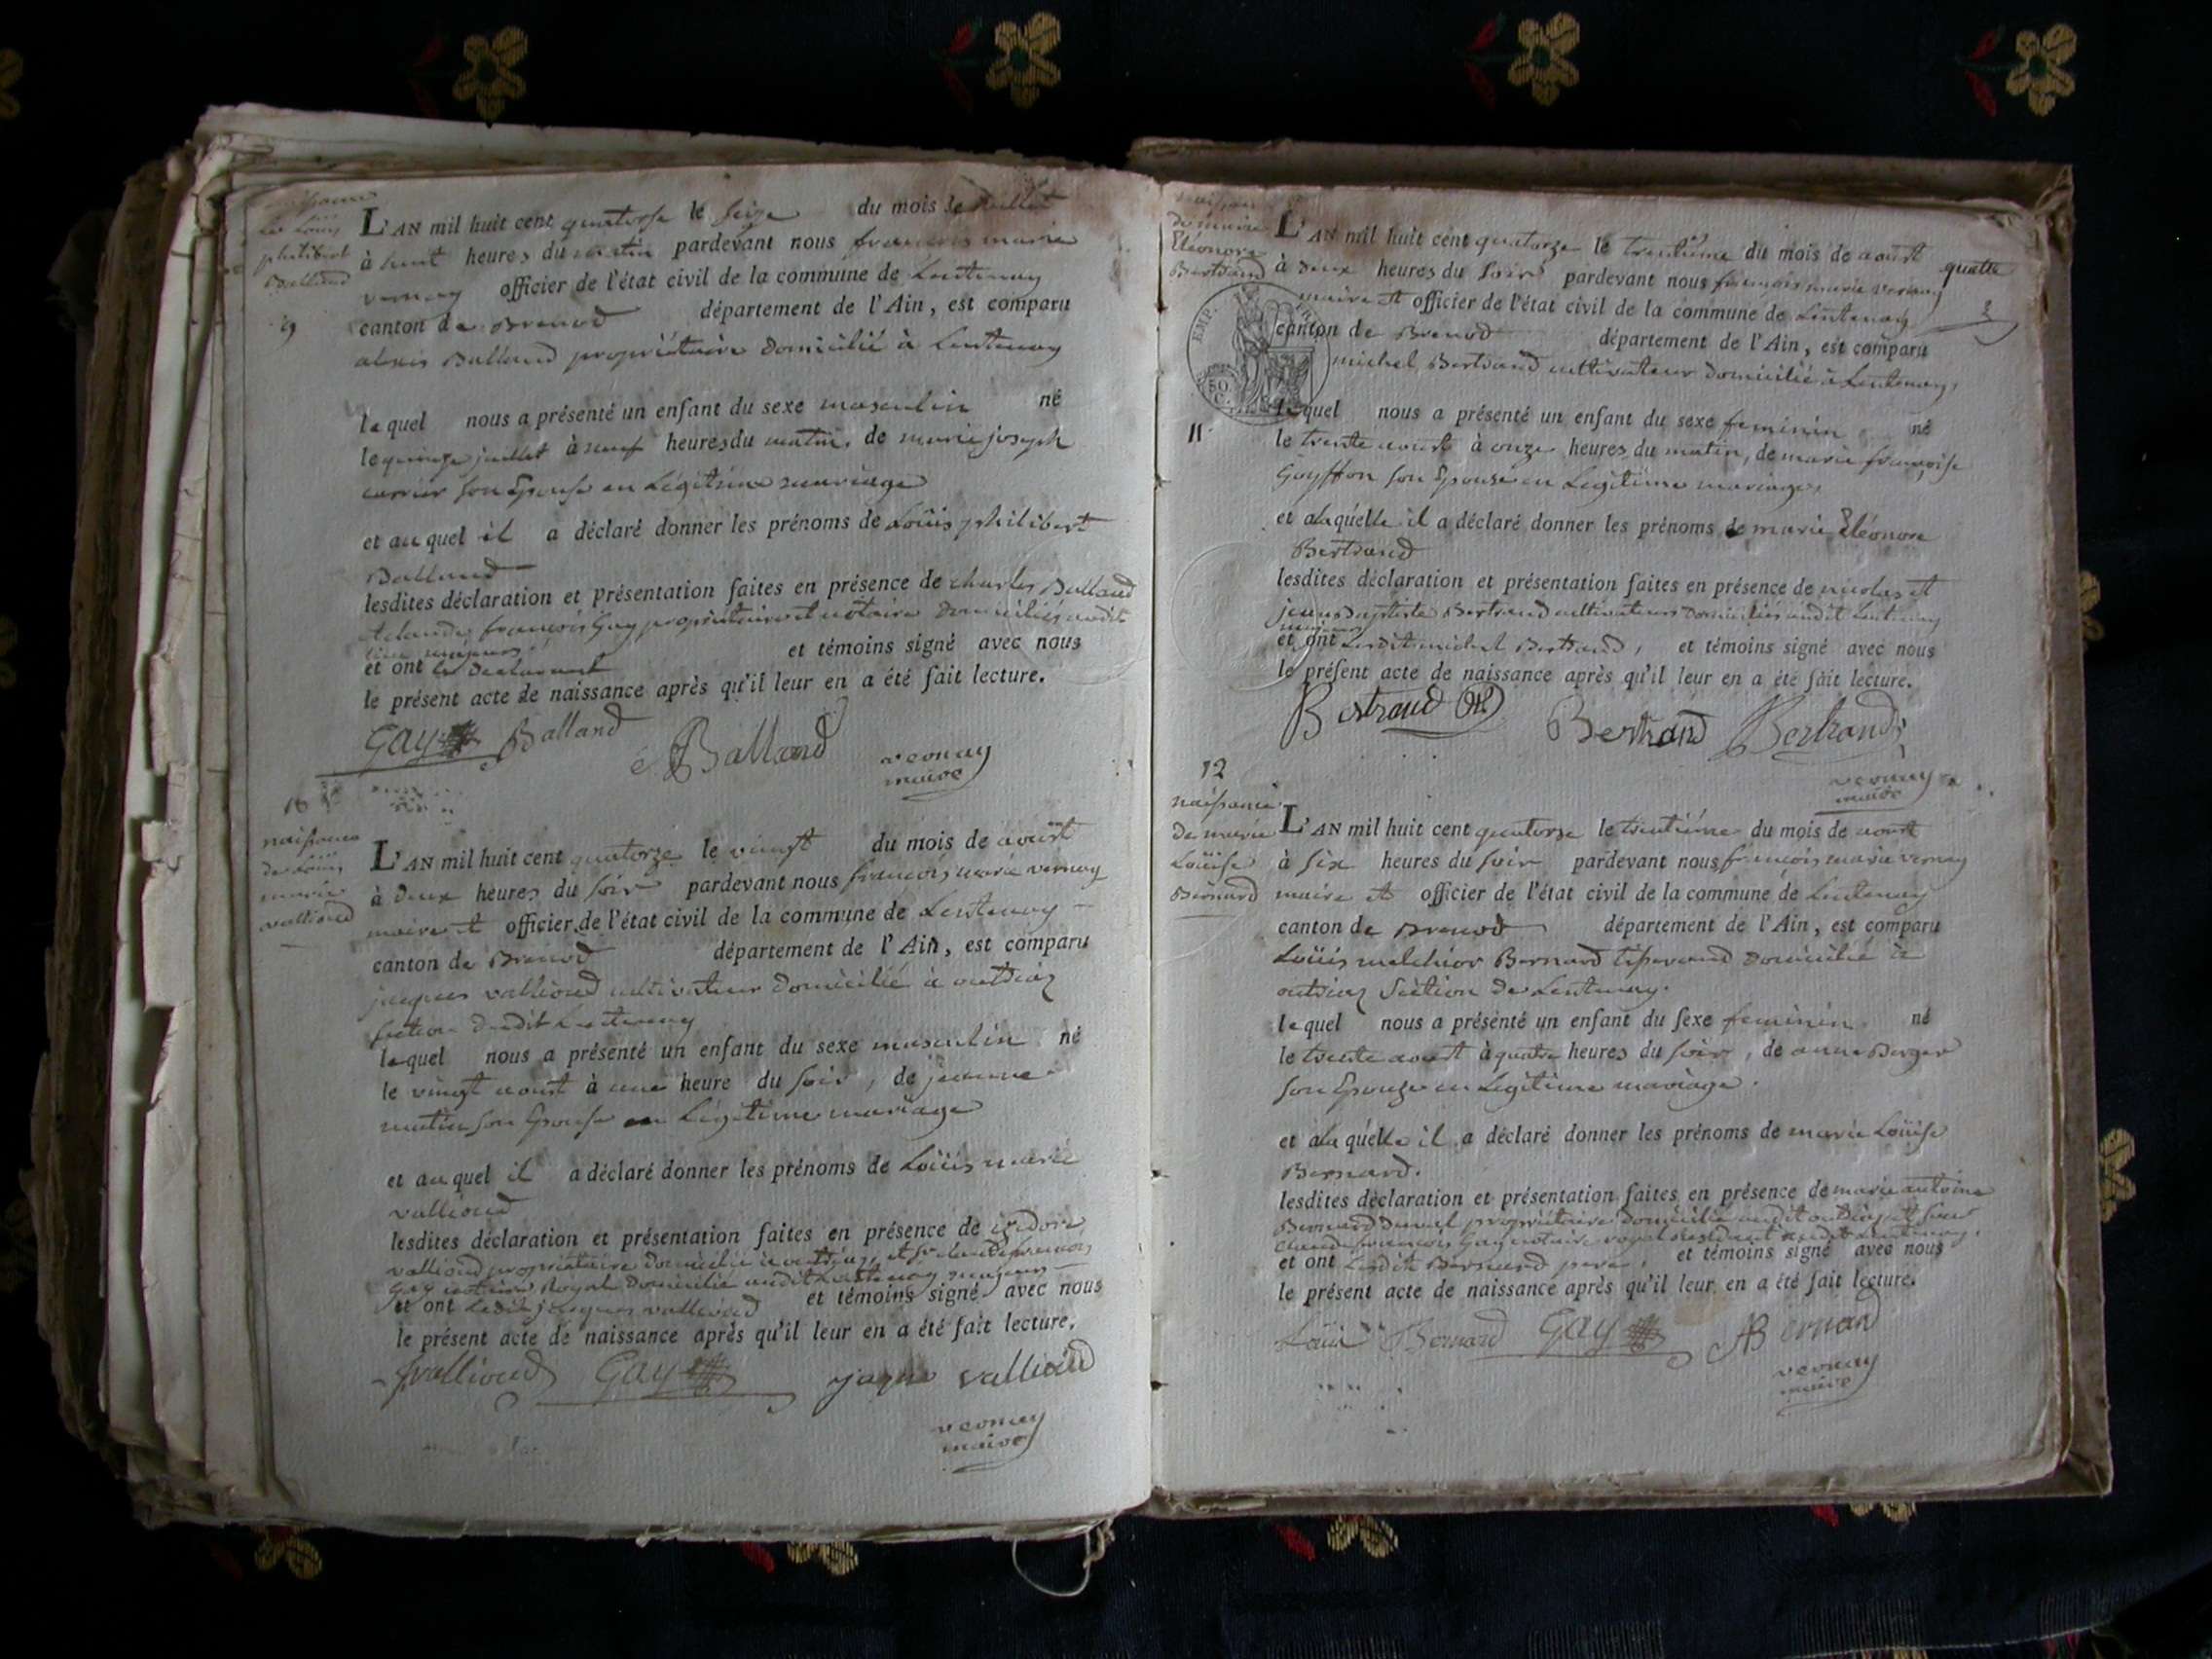 naissance
de Loüis
philibert
Balland
9
L'AN mil huit cent quatorse le seize du mois de Juillet
à huit heures du matin pardevant nous francois marie
vernay officier de l'état civil de la commune de Lentenay
canton de Brenod département de l'Ain, est comparu
alexis Balland propriétaire domicilié à Lentenay
lequel nous a présenté un enfant du sexe masculin né
le quinze juillet à neuf heures du matin, de marie joseph
carrier son Epouse en Légitime mariage
et au quel il a déclaré donner les prénoms de Loüis philibert
Balland
lesdites déclaration et présentation faites en présence de charles Balland
et claude francois Gay propriétaire et notaire domiciliés audit
lieu majeurs
et ont les declarant et témoins signé avec nous
le présent acte de naissance après qu'il leur en a été fait lecture.
Gay Balland Balland vernay
maire
10
naissance
de Loüis
marie
vallioud
L'AN mil huit cent quatorze le vingt du mois de aoust
à deux heures du soir pardevant nous francois marie vernay
maire et officier de l'état civil de la commune de Lentenay
canton de Brenod département de l'Ain, est comparu
jacques vallioud cultivateur domicilié à outriaz
section dudit Lentenay
lequel nous a présenté un enfant du sexe masculin né
le vingt aoust à une heure du soir, de jeanne
matin son Epouse en Légitime mariage
et au quel il a déclaré donner les prénoms de Loüis marie
vallioud
lesdites déclaration et présentation faites en présence de izidore
vallioud propriétaire domicilié à outriaz, et sr claude francois
Gay notaire Royal domicilié audit Lentenay majeurs
et ont Ledit jacques vallioud et témoins signé avec nous
le présent acte de naissance après qu'il leur en a été fait lecture.
vallioud Gay jaque vallioud
vernay
maire
naissance
de marie
Eléonore
Bertrand
11
quatre
L'AN mil huit cent quatorze le trentième du mois de aoust
à deux heures du soir pardevant nous francois marie vernay
maire et officier de l'état civil de la commune de Lentenay
canton de Brenod département de l'Ain, est comparu
michel Bertrand cultivateur domicilié à Lentenay,
EMP. FR.
50
C.
lequel nous a présenté un enfant du sexe feminin né
le trente aoust à onze heures du matin, de marie francoise
Goyffon son Epouse en Légitime mariage,
et ala quelle il a déclaré donner les prénoms de marie Eléonore
Bertrand
lesdites déclaration et présentation faites en présence de nicolas et
jean Baptiste Bertrand cultivateurs domiciliés audit Lentenay
majeurs
et ont Ledit michel Bertrand, et témoins signé avec nous
le présent acte de naissance après qu'il leur en a été fait lecture.
Bertrand Bertrand Bertrand
vernay
maire
12
naissance
de marie
Loüise
Bernard
L'AN mil huit cent quatorse le trentième du mois de aoust
à six heures du soir pardevant nous francois marie vernay
maire et officier de l'état civil de la commune de Lentenay
canton de Brenod département de l'Ain, est comparu
Loüis melchior Bernard tisserand domicilié à
outriaz Section de Lentenay.
lequel nous a présenté un enfant du sexe feminin né
le trente aoust à quatre heures du soir, de anne Berger
son Epouze en Légitime mariage.
et ala quelle il a déclaré donner les prénoms de marie Loüise
Bernard.
lesdites déclaration et présentation faites en présence de marie antoine
Bernard propriétaire domicilié audit outriaz et sieur
claude francois Gay notaire royal résident audit Lentenay,
et ont Ledit Bernard pere, et témoins signé avec nous
le présent acte de naissance après qu'il leur en a été fait lecture.
Loüis Bernard Gay Bernard
vernay
maire